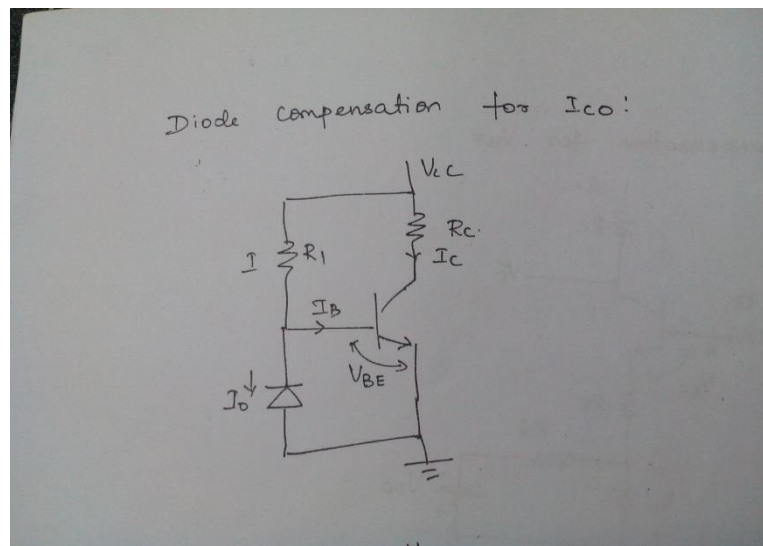 Diode compensation for ICO:
VCC
RC.
I R1 IC
IB
VBE
Io